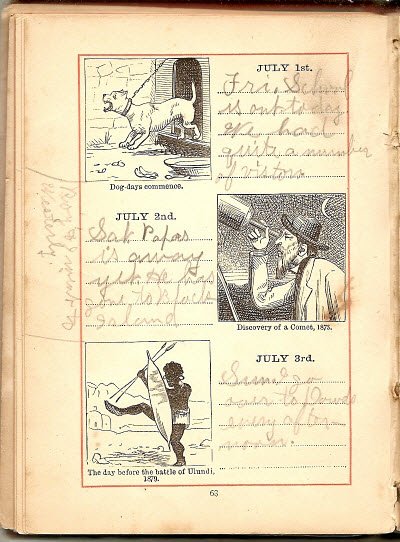 JULY 1st.
Fri. School
is out today
We had
quite a number
of visitors
Dog-days commence.
JULY 2nd.
Sat Papas
is away
yet. He has
gone to
Island
Discovery of a Comet, 1873.
JULY 3rd.
Sun.
over to
every after
noon.
The day before the battle of Ulundi,
1879.
63